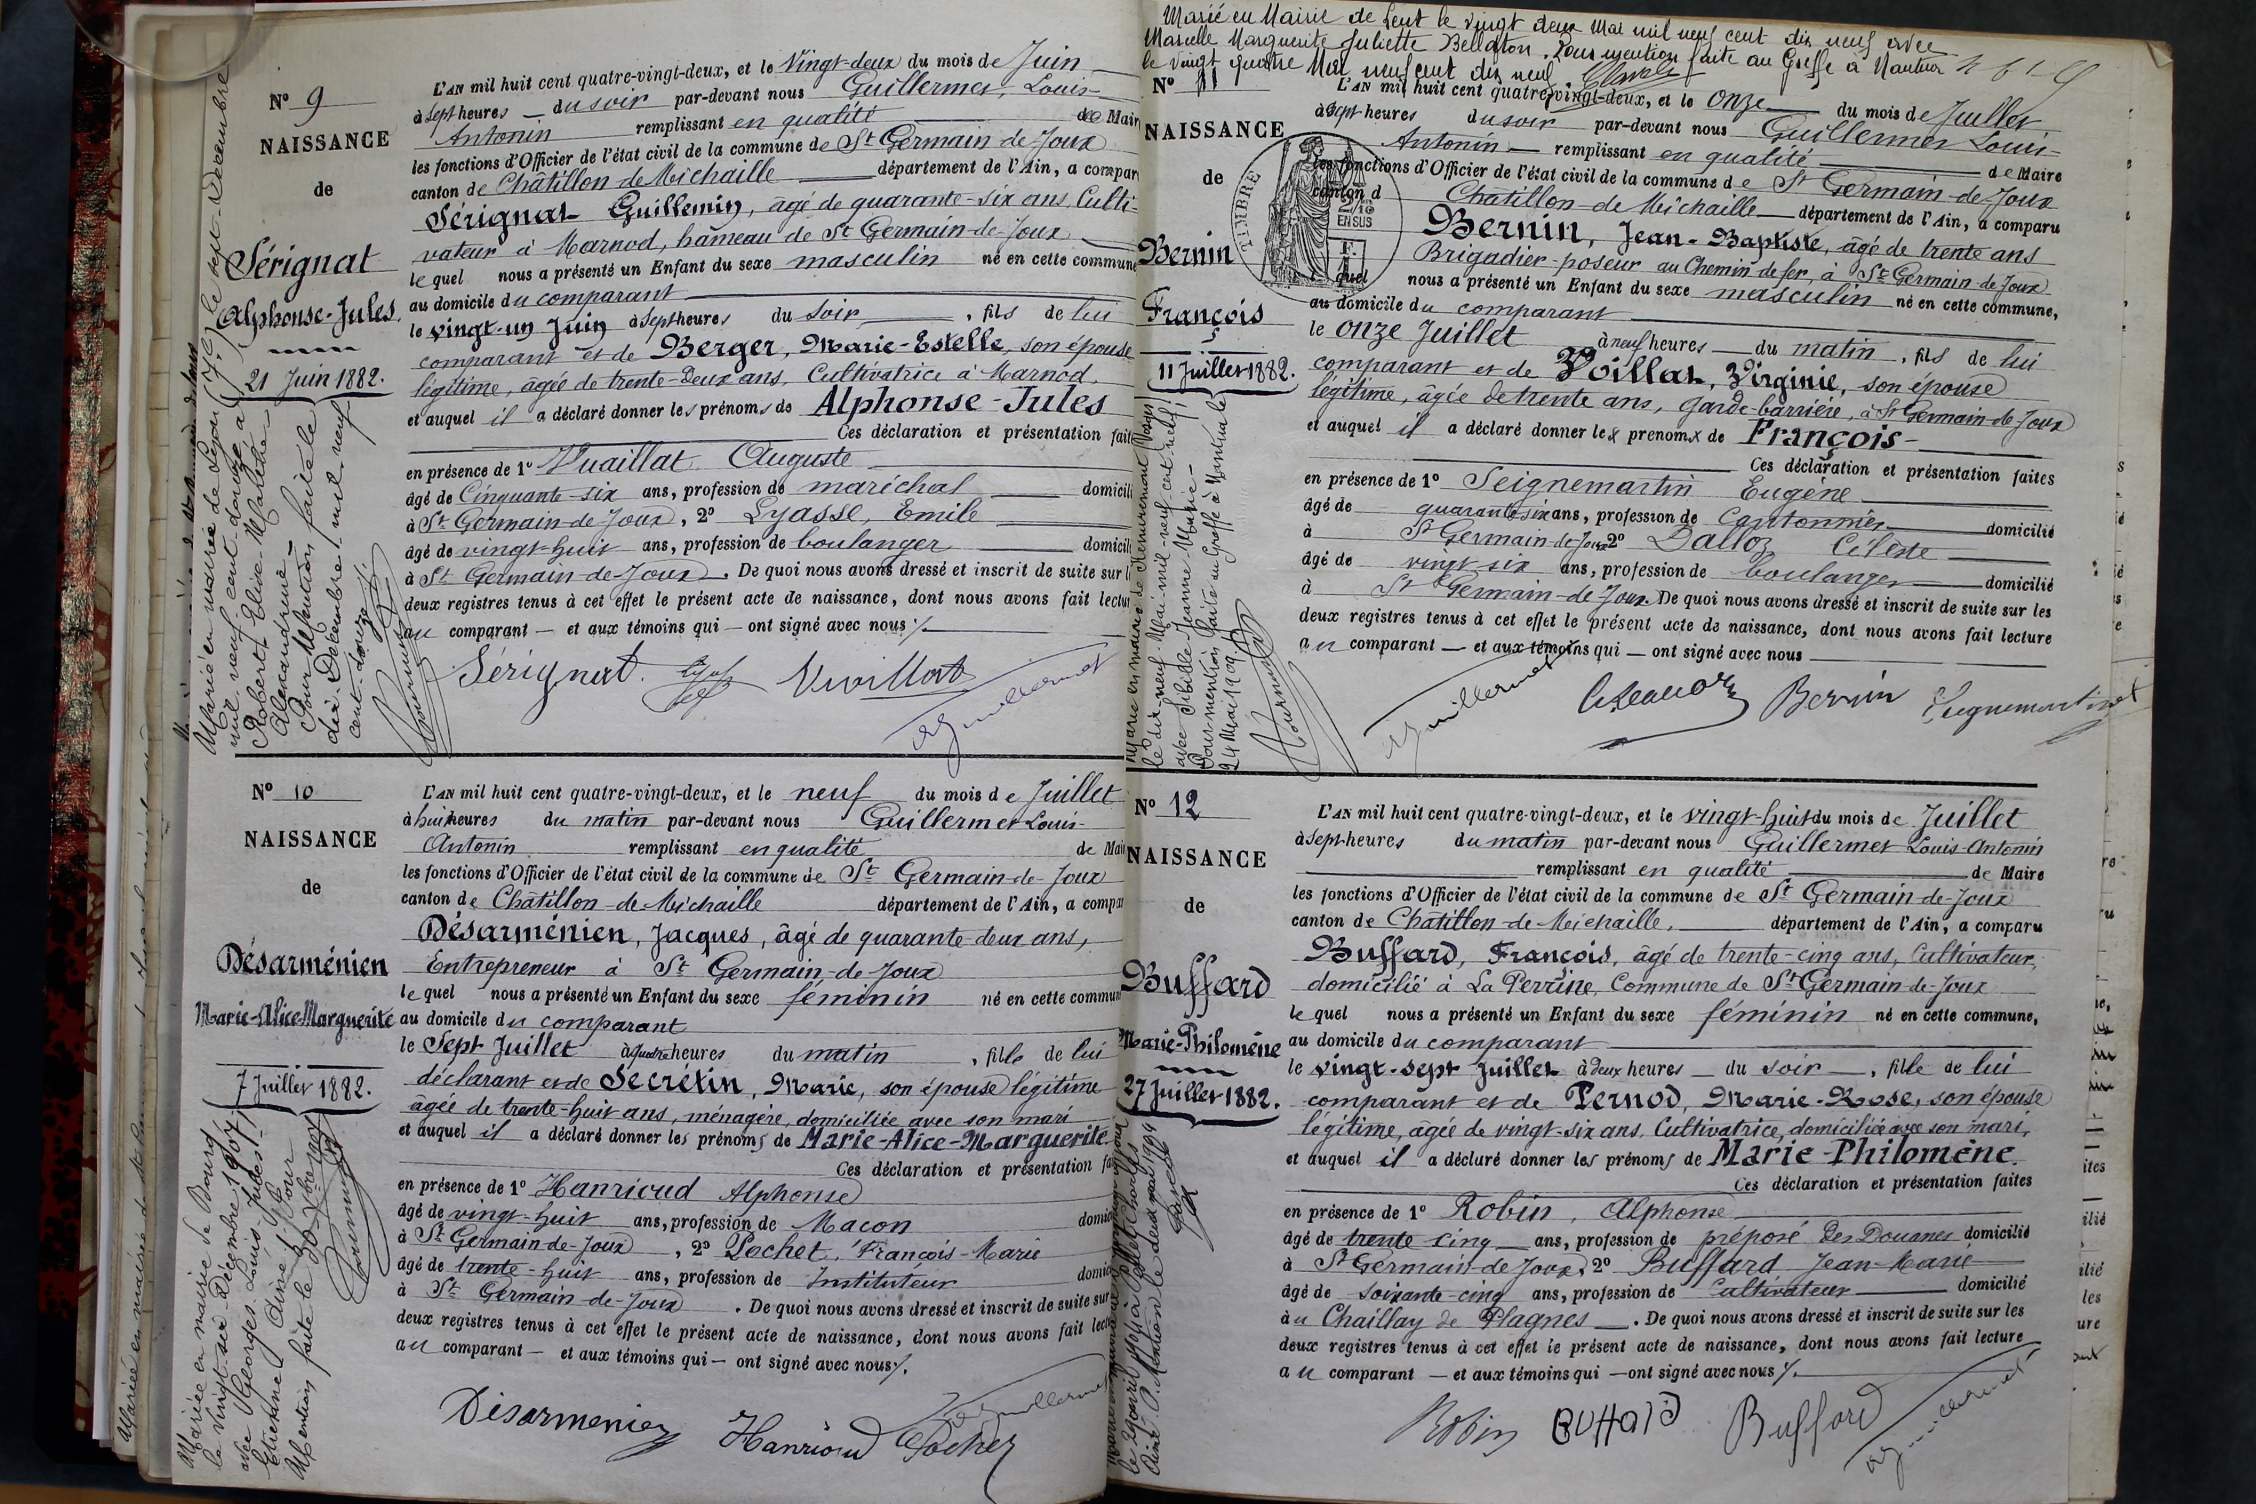 N° 9
NAISSANCE
de
Sérignat
Alphonse-Jules.
21 Juin 1882.
Marié en mairie de le sept Décembre
mil neuf cent douze à
Robert Elise Mathilde
Alexandrine
Pour Mention faite le
dix Décembre mil neuf
cent douze
L'AN mil huit cent quatre-vingt-deux, et le Vingt-deux du mois de Juin
à sept heures du soir par-devant nous Guillermet, Louis-
Antonin remplissant en qualité de Mair
les fonctions d'Officier de l'état civil de la commune de St Germain de Joux
canton de Châtillon de Michaille département de l'Ain, a compar
Sérignat Guillemin, âgé de quarante-six ans, Culti-
vateur à Marnod, hameau de St Germain-de-Joux
le quel nous a présenté un Enfant du sexe masculin né en cette commune
au domicile du comparant
le vingt-un Juin à sept heures du soir, fils de lui
comparant et de Berger, Marie-Estelle, son épouse
légitime, âgée de trente-deux ans, Cultivatrice à Marnod,
et auquel il a déclaré donner les prénoms de Alphonse-Jules
Ces déclaration et présentation fait
en présence de 1° Vuaillat Auguste
âgé de Cinquante-six ans, profession de maréchal domicili
à St Germain-de-Joux, 2° Lyasse, Emile
âgé de vingt-huit ans, profession de boulanger domicili
à St Germain-de-Joux. De quoi nous avons dressé et inscrit de suite sur l
deux registres tenus à cet effet le présent acte de naissance, dont nous avons fait lectur
au comparant — et aux témoins qui — ont signé avec nous ./.
Sérignat
Guillermet
N° 10
NAISSANCE
de
Désarménien
Marie-Alice-Marguerite
7 Juillet 1882.
Mariée en mairie de Bourg
le vingt-six Décembre 1907
avec Georges-Louis-Jules-
Etienne Pour
Mention faite le 30 Xbre 1907
L'AN mil huit cent quatre-vingt-deux, et le neuf du mois de Juillet
à huit heures du matin par-devant nous Guillermet Louis-
Antonin remplissant en qualité de Mair
les fonctions d'Officier de l'état civil de la commune de St Germain-de-Joux
canton de Châtillon-de-Michaille département de l'Ain, a compar
Désarménien, Jacques, âgé de quarante deux ans,
Entrepreneur à St Germain-de-Joux
le quel nous a présenté un Enfant du sexe féminin né en cette commun
au domicile du comparant
le Sept Juillet à quatre heures du matin, fille de lui
déclarant et de Secrétin, Marie, son épouse légitime
âgée de trente-huit ans, ménagère, domiciliée avec son mari
et auquel il a déclaré donner les prénoms de Marie-Alice-Marguerite
Ces déclaration et présentation fa
en présence de 1° Hanrioud Alphonse
âgé de vingt-huit ans, profession de Maçon domici
à St Germain-de-Joux, 2° Pochet, François-Marie
âgé de trente-huit ans, profession de Instituteur domic
à St Germain-de-Joux. De quoi nous avons dressé et inscrit de suite sur
deux registres tenus à cet effet le présent acte de naissance, dont nous avons fait lectu
au comparant — et aux témoins qui — ont signé avec nous ./.
Désarménien Hanrioud Pochet Guillermet
Marié en Mairie de Lent le vingt deux Mai mil neuf cent dix neuf avec
Marielle Marguerite Juliette Bellaton. Pour mention faite au Greffe à Nantua
le vingt quatre Mai neuf cent dix neuf.
N° 11
NAISSANCE
de
Bernin
François
11 Juillet 1882.
TIMBRE
2/10
EN SUS
F.
le dix-neuf Mai mil neuf cent neuf
avec Sibille Jeanne Marie-
Pour mention faite au Greffe à Nantua le
24 Mai 1909
L'AN mil huit cent quatre-vingt-deux, et le onze du mois de Juillet
à sept heures du soir par-devant nous Guillermet Louis-
Antonin — remplissant en qualité de Maire
les fonctions d'Officier de l'état civil de la commune de St Germain-de-Joux
canton d Châtillon-de-Michaille — département de l'Ain, a comparu
Bernin, Jean-Baptiste, âgé de trente ans
Brigadier-poseur au Chemin de fer, à St Germain de Joux
quel nous a présenté un Enfant du sexe masculin né en cette commune,
au domicile du comparant
le onze Juillet à neuf heures — du matin, fils de lui
comparant et de Poillat, Virginie, son épouse
légitime, âgée de trente ans, garde-barrière, à St Germain-de-Joux
et auquel il a déclaré donner les prénoms de François-
Ces déclaration et présentation faites
en présence de 1° Seignemartin Eugène
âgé de quarante six ans, profession de Cantonnier domicilié
à St Germain-de-Joux 2° Dalloz Céleste
âgé de vingt six ans, profession de boulanger domicilié
à St Germain-de-Joux. De quoi nous avons dressé et inscrit de suite sur les
deux registres tenus à cet effet le présent acte de naissance, dont nous avons fait lecture
au comparant — et aux témoins qui — ont signé avec nous
Guillermet Bernin Seignemartin
N° 12
NAISSANCE
de
Buffard
Marie-Philomène
27 Juillet 1882.
L'AN mil huit cent quatre-vingt-deux, et le vingt-huit du mois de Juillet
à sept heures du matin par-devant nous Guillermet Louis-Antonin
remplissant en qualité de Maire
les fonctions d'Officier de l'état civil de la commune de St Germain-de-Joux
canton de Châtillon-de-Michaille, département de l'Ain, a comparu
Buffard, François, âgé de trente-cinq ans, Cultivateur,
domicilié à La Perrine, Commune de St Germain-de-Joux
le quel nous a présenté un Enfant du sexe féminin né en cette commune,
au domicile du comparant
le vingt-sept Juillet à deux heures — du soir —, fille de lui
comparant et de Pernod, Marie-Rose, son épouse
légitime, âgée de vingt-six ans, Cultivatrice, domiciliée avec son mari,
et auquel il a déclaré donner les prénoms de Marie-Philomène.
Ces déclaration et présentation faites
en présence de 1° Robin, Alphonse
âgé de trente cinq ans, profession de préposé des Douanes domicilié
à St Germain-de-Joux, 2° Buffard Jean-Marie
âgé de soixante-cinq ans, profession de Cultivateur domicilié
à au Chaillay de Plagnes —. De quoi nous avons dressé et inscrit de suite sur les
deux registres tenus à cet effet le présent acte de naissance, dont nous avons fait lecture
au comparant — et aux témoins qui — ont signé avec nous ./.
Robin Buffard Buffard Guillermet